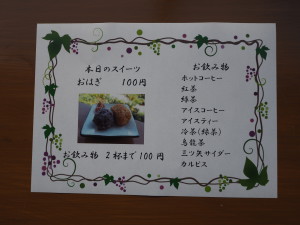 本日のスイーツ
おはぎ 100円
お飲み物 2杯まで100円
お飲み物
ホットコーヒー
紅茶
緑茶
アイスコーヒー
アイスティー
冷茶(緑茶)
烏龍茶
三ツ矢サイダー
カルピス